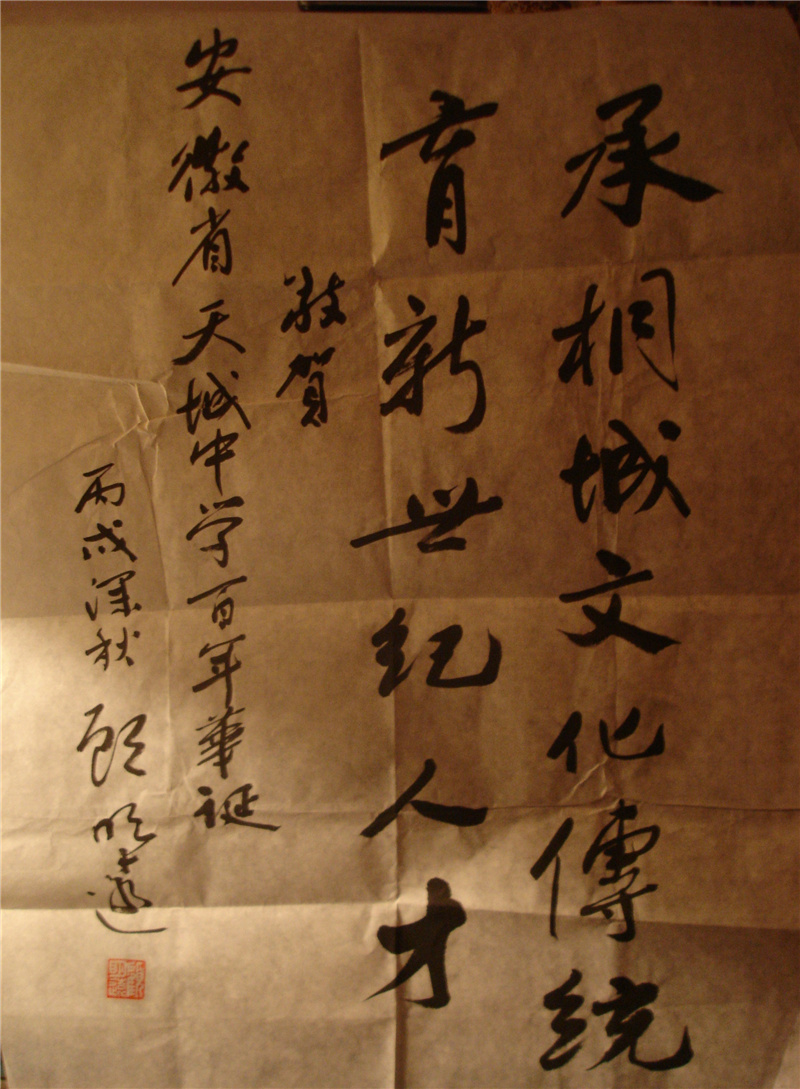 承桐城文化傳統
育新世纪人才
敬賀
安徽省天城中学百年華誕
丙戌深秋 顧明遠